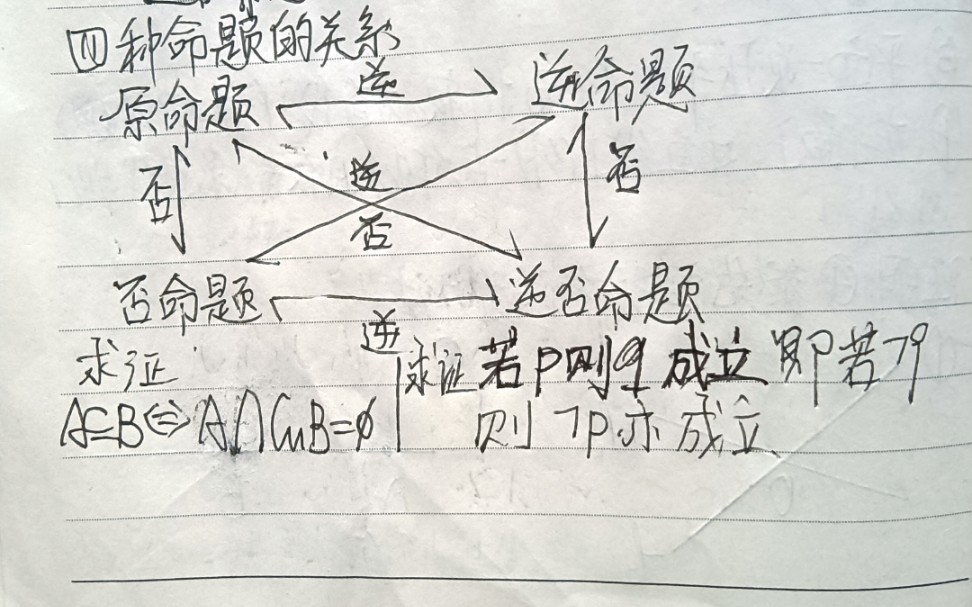 四种命题的关系
原命题 逆 逆命题
否 逆 否
否
否命题 逆 逆否命题
求证 求证若p则q成立 即若¬q
A⊆B⇔A∩CuB=∅ 则¬p亦成立